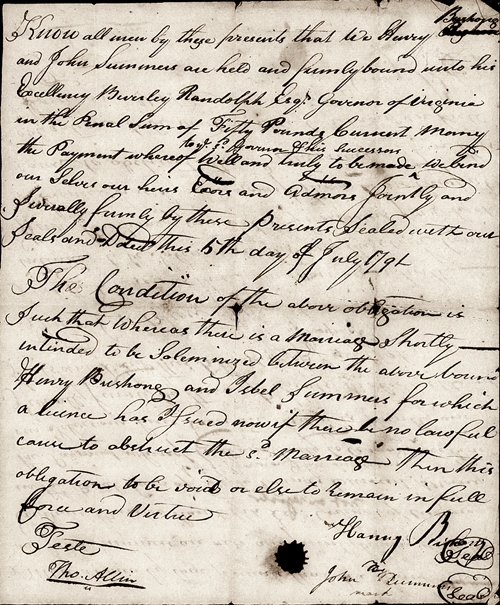 Bushong
Know all men by these presents that We Henry
and John Summers are held and firmly bound unto his
Excellency Beverley Randolph Esqr. Govenor of Virginia
in the Penal Sum of Fifty Pounds Current Money
to ye. sd. Govenor & his Successors
the Payment whereof Well and truly to be made we bind
our Selves our heirs Exors and Admors Jointly and
Severally firmly by these Presents Sealed with our
Seals and Dated this 5th day of July 1791
The Condition of the above obligation is
Such that Whereas there is a Marriage Shortly
intended to be Solemnized between the above boun
Henry Bushong and Isbel Summers for which
a licence has Issued now if there be no lawful
cause to obstruct the sd. Marriage Then this
obligation to be void or else to Remain in full
force and Virtue
Teste
Henry Bushong Seal
Tho. Allin
John Summers Seal
mark